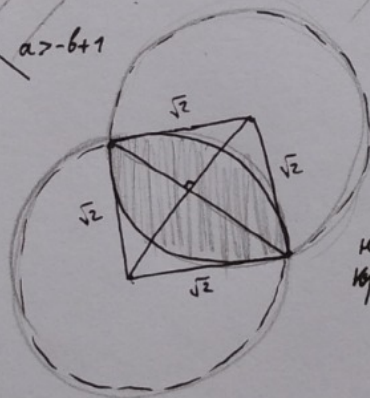 a>-b+1
√2
√2
√2
√2